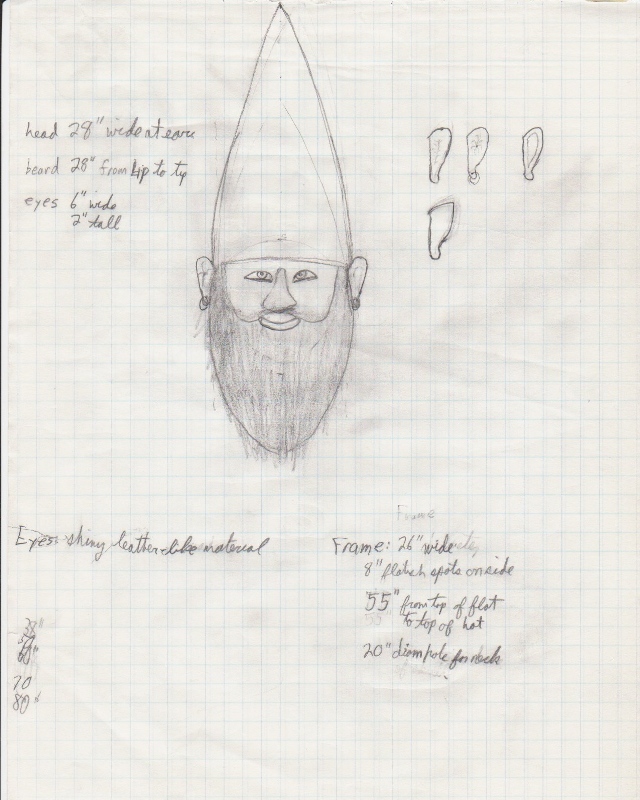 head 28" wide at ears
beard 28" from lip to tip
eyes 6" wide
2" tall
Frame
Eyes: shiny leather-like material
Frame: 26" wide
8" flatish spots on side
55" from top of flat
to top of hat
20" diam pole for neck
70
80"